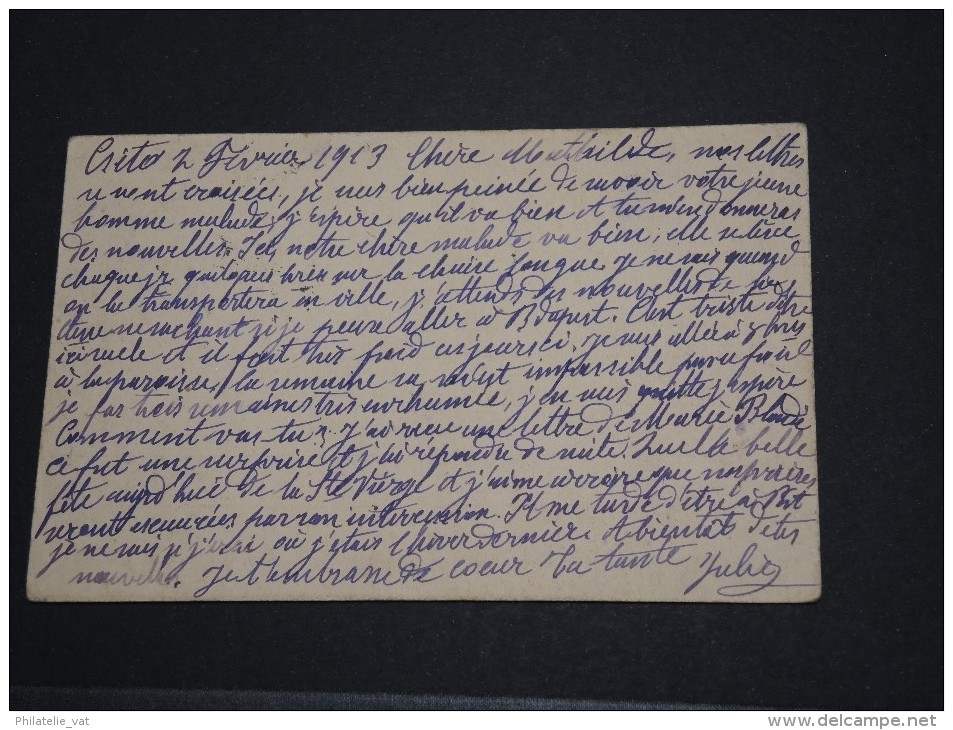 Csito 2 Février 1913 Chère Mathilde, nos lettres
se sont croisées, je suis bien peinée de savoir votre jeune
homme malade, j'espère qu'il va bien et tu m'en donneras
des nouvelles. Ici, notre chère malade va bien, elle
chaque jr quelques hres sur la chaise longue, je ne sais quand
on la transportera en ville, j'attends des nouvelles de
ne sachant si je peux aller à Bdapest. C'est triste d'être
ici seule et il fait très froid ces jours ci, je suis allée à 7 hrs
à la paroisse, la semaine ça m'est impossible par ce froid
je fus trois semaines très enrhumée, j'en suis quitte j'espère
Comment vas tu? J'ai reçu une lettre de Marie
ce fut une surprise et j'ai répondu de suite. Quelle belle
fête aujourd'hui de la Ste Vierge et j'aime à croire que nos prières
seront exaucées par son intercession. Il me tarde d'être à Bst
je ne sais si j'irai où j'étais l'hiver dernier. A bientôt de tes
nouvelles. Je t'embrasse de coeur Ta tante Julie
Philatelie_vat
www.delcampe.net